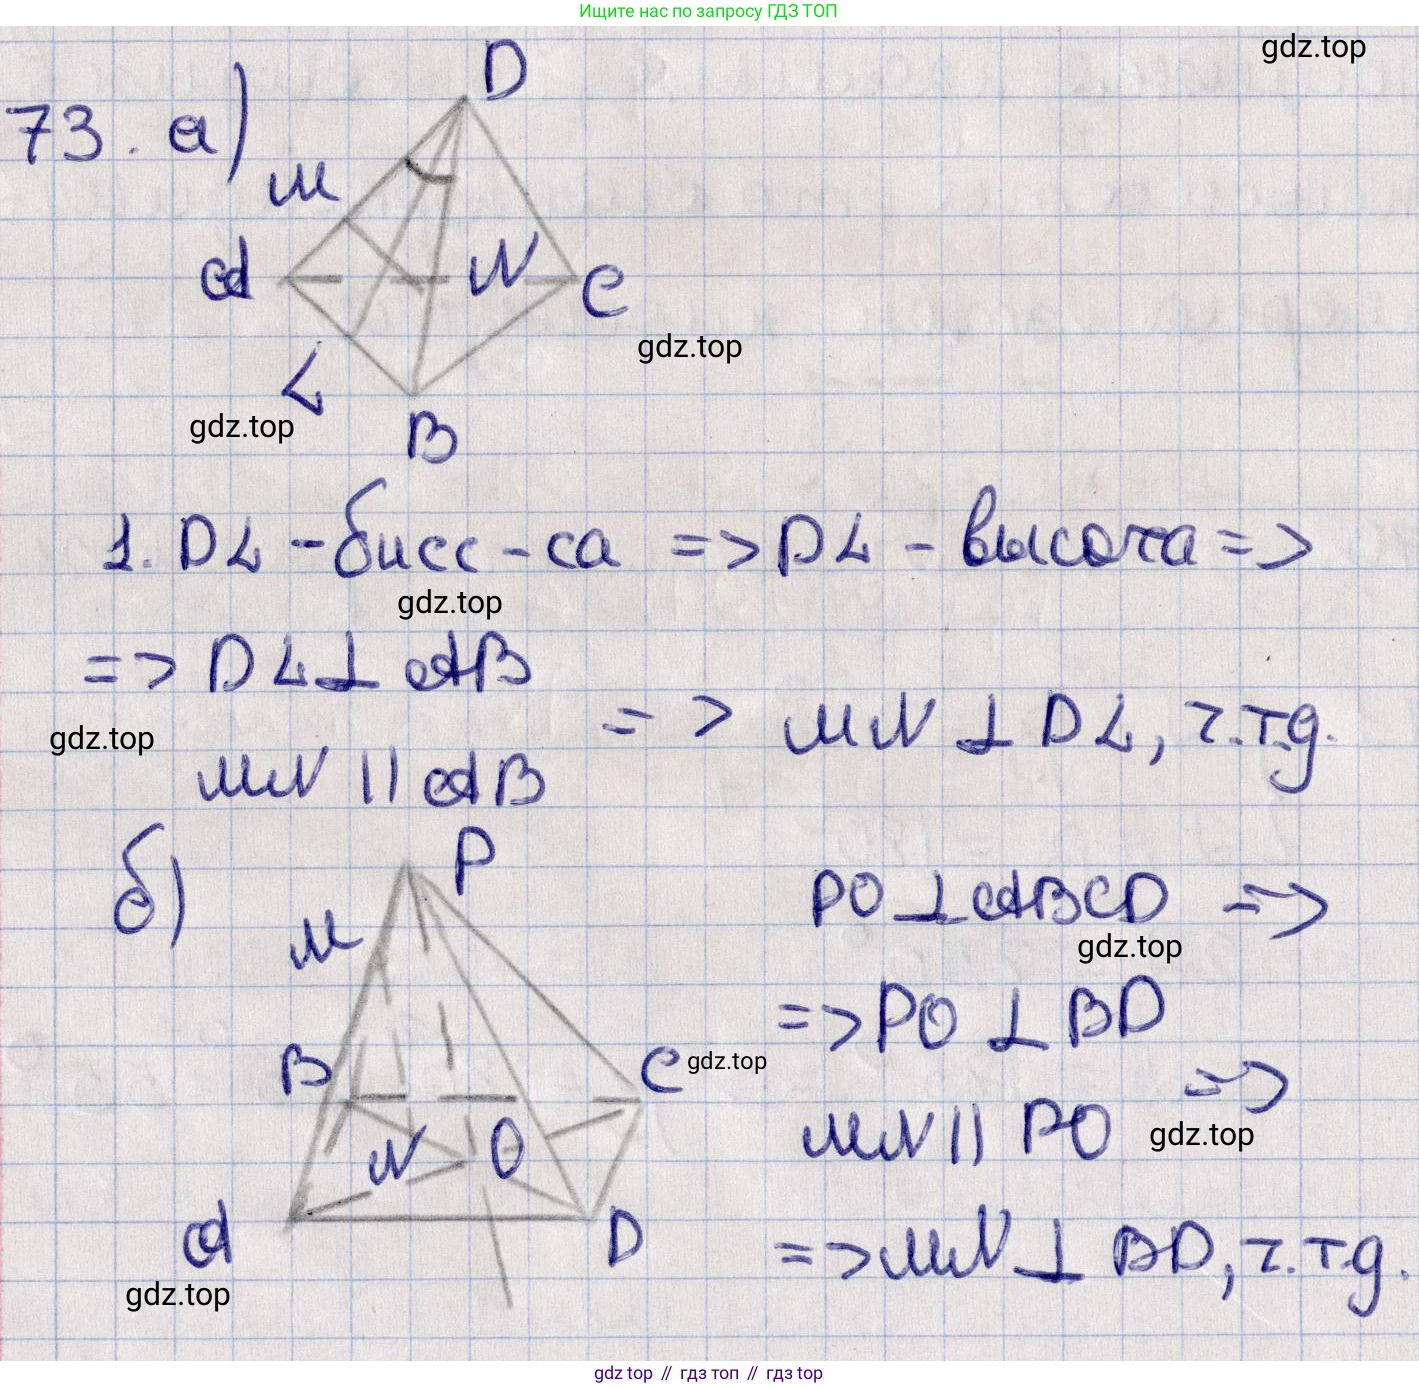 Ищите нас по запросу ГДЗ ТОП
gdz.top
D
73. а)
M
A
N
C
gdz.top
L
gdz.top
B
1. DL - бисс-са => DL - высота =>
gdz.top
=> DL ⊥ AB
=> MN ⊥ DL, ч.т.д.
gdz.top
MN || AB
б)
P
M
PO ⊥ ABCD =>
gdz.top
=> PO ⊥ BD
B
C
gdz.top
=>
MN || PO
gdz.top
N
O
A
D
=> MN ⊥ BD, ч.т.д.
gdz.top
gdz top // гдз топ // гдз top